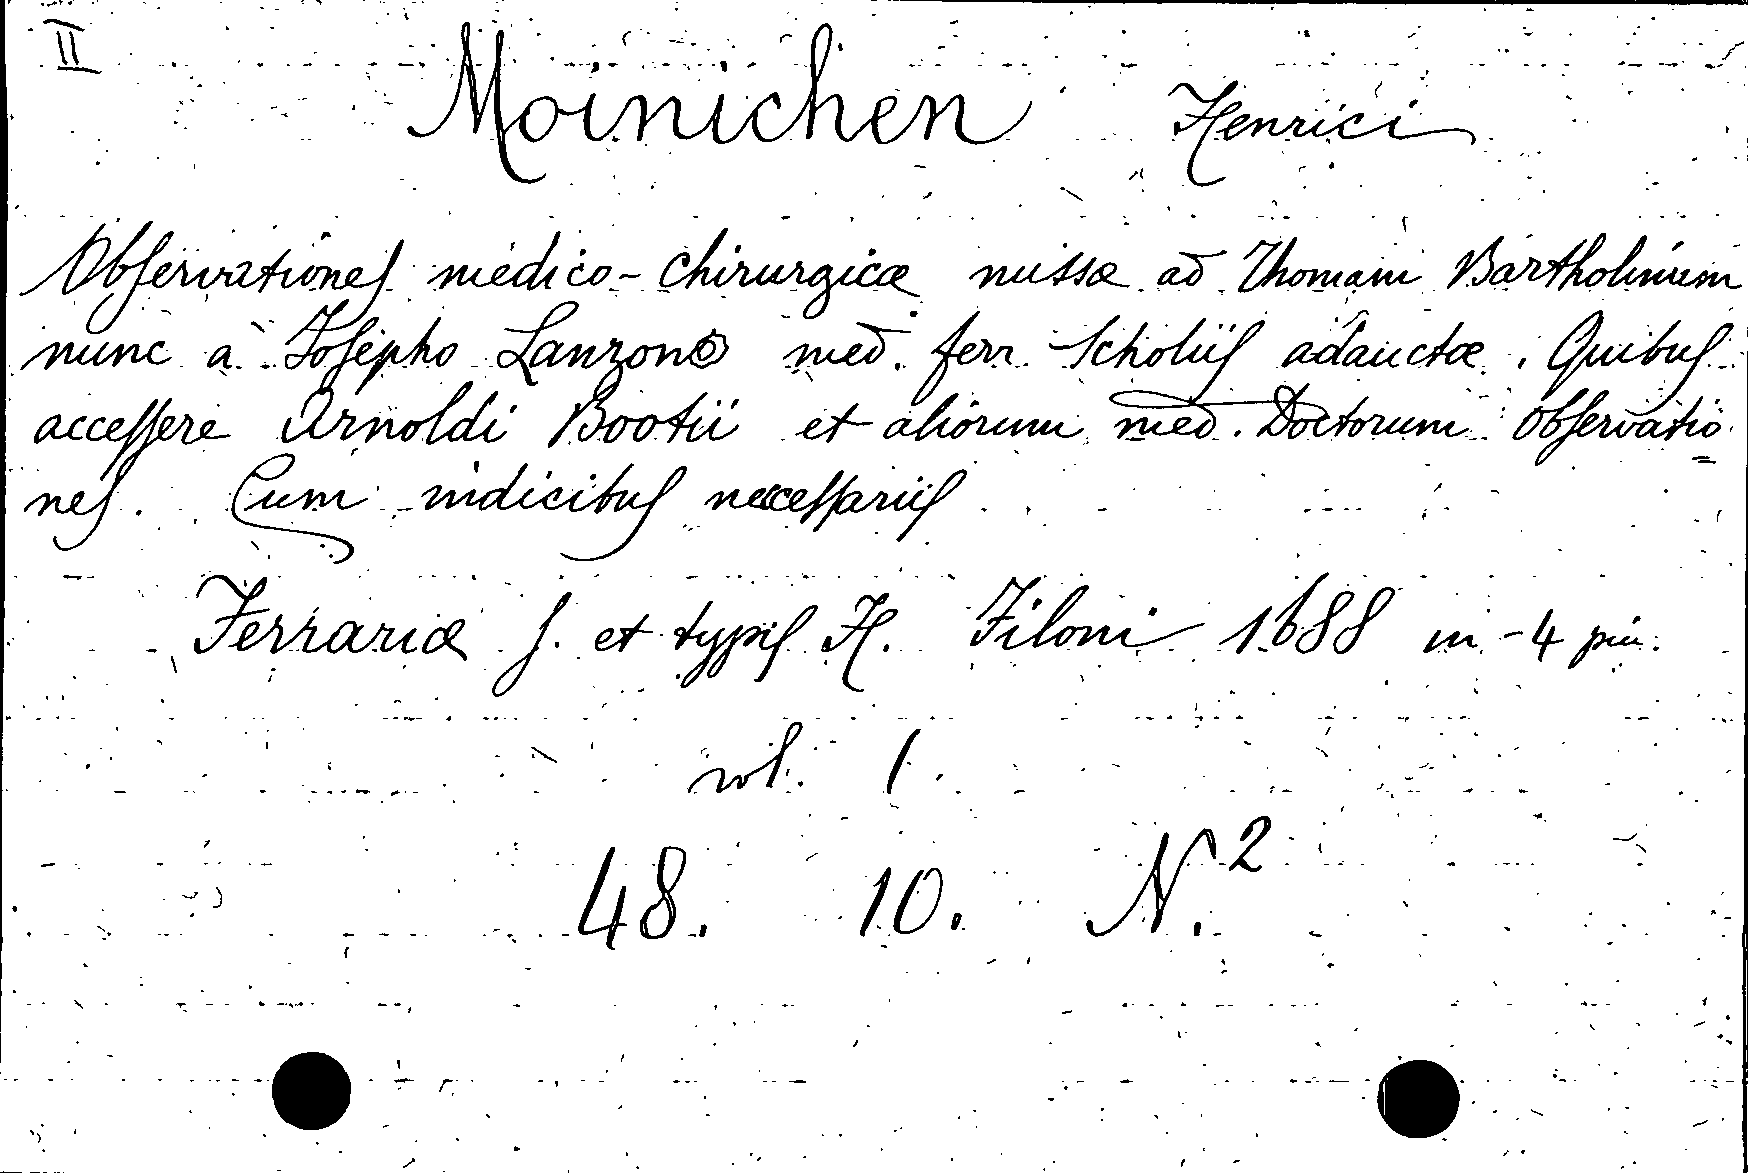 II
Moinichen Henrici
Obſervationeſ medico-chirurgicæ missæ ad Thomam Bartholinum
nunc a Joſepho Lanzono med. ferr. Scholiiſ adauctæ. Quibuſ
acceſſere Arnoldi Bootii et aliorum med. Doctorum obſervatio=
neſ. Cum indicibuſ necceſſariiſ
Ferrariæ ſ. et typiſ H. Filoni 1688 in-4 piu.
vol. 1.
48. 10. N.2